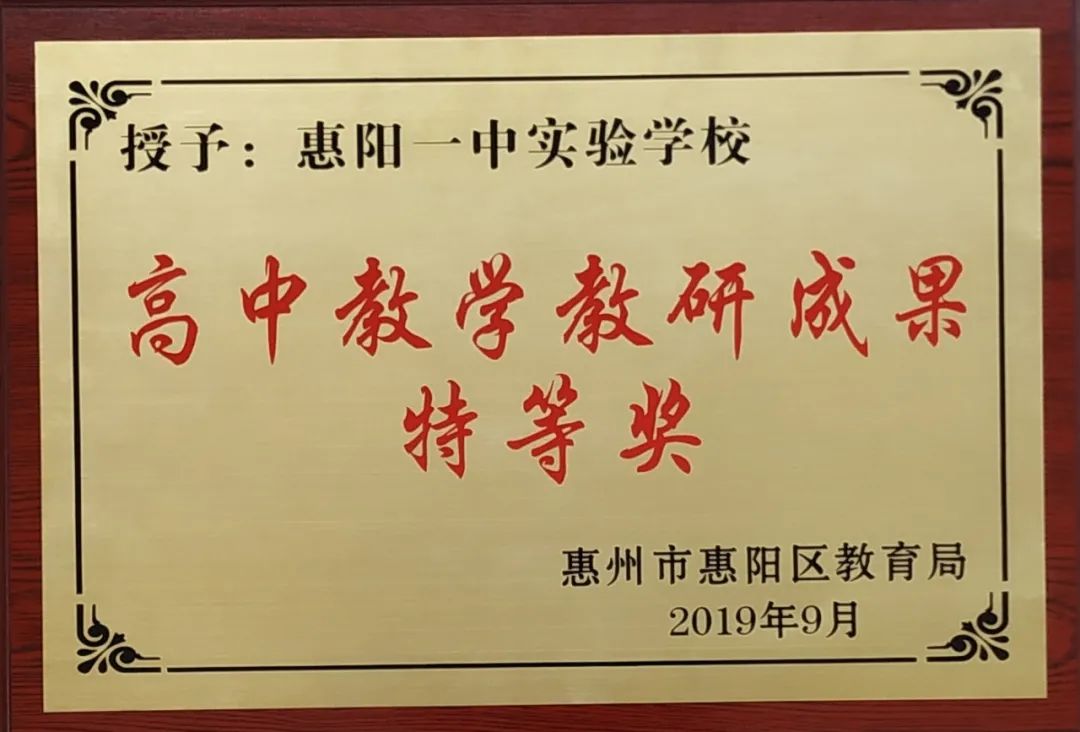 授予：惠阳一中实验学校
高中教学教研成果
特等奖
惠州市惠阳区教育局
2019年9月